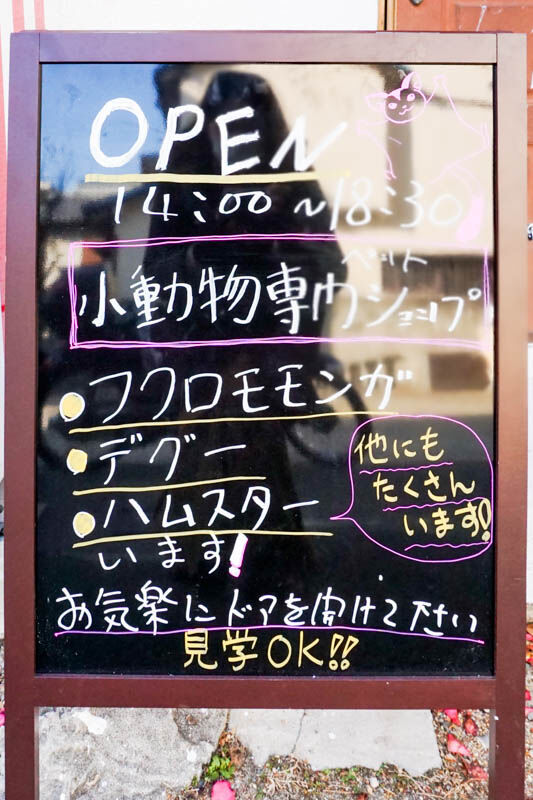 OPEN
14:00 ~18:30
ペット
小動物専門ショップ
フクロモモンガ
デグー
ハムスター
います!
他にも
たくさん
います!
お気楽にドアを開けて下さい
見学OK!!